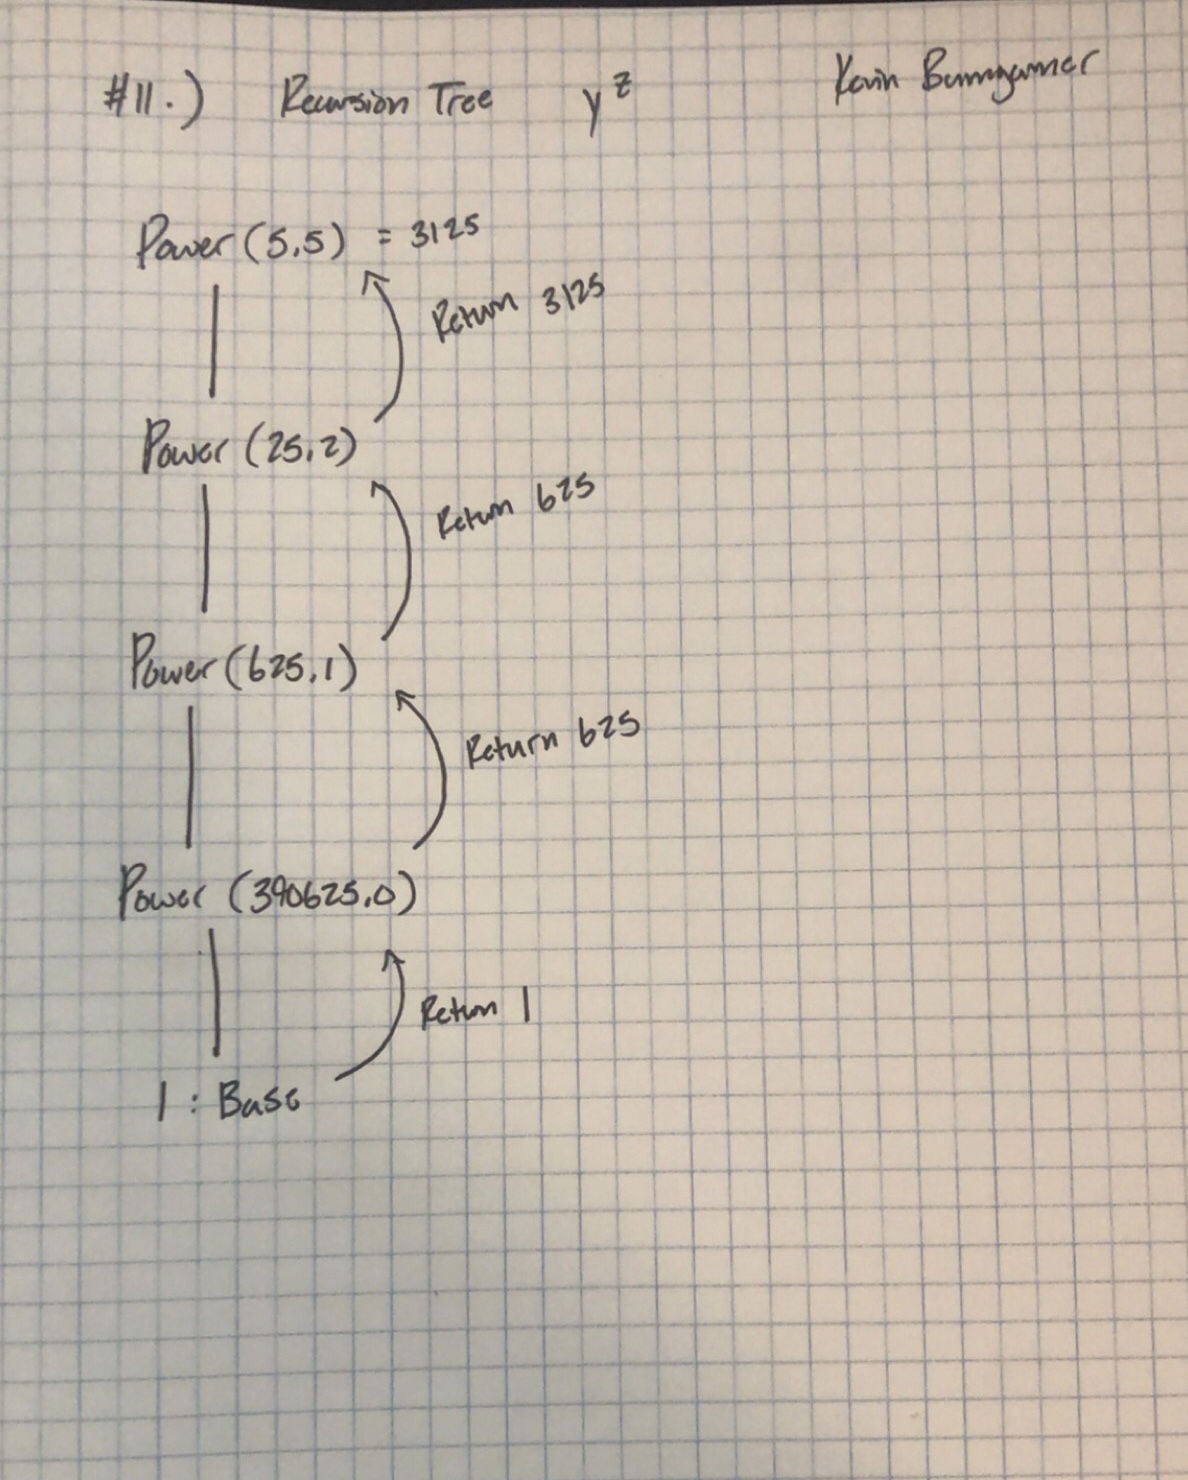 #11.) Recursion Tree y^z Kevin Bumgarner
Power (5,5) = 3125
Return 3125
Power (25,2)
Return 625
Power (625,1)
Return 625
Power (390625,0)
Return 1
1 : Base